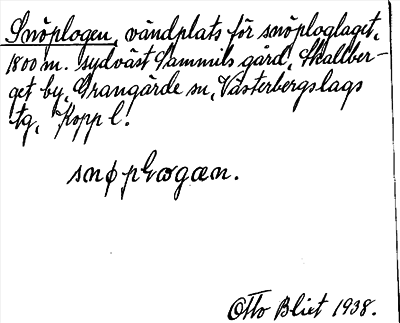 Snöplogen, vändplats för snöploglaget,
1800 m. sydväst Sammils gård, Skallber-
get by, Grangärde sn, Västerbergslags
tg, Kopp l.
snøplogæn.
Otto Bliet 1938.